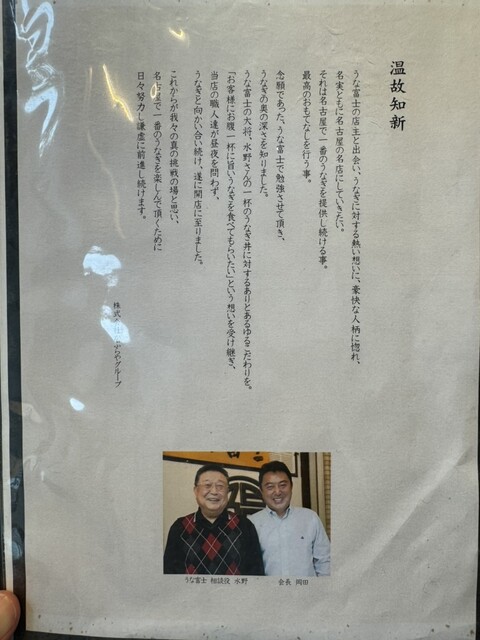 温故知新
うな富士の店主と出会い、うなぎに対する熱い想いに、豪快な人柄に惚れ、
名実ともに名古屋の名店にしていきたい。
それは名古屋で一番のうなぎを提供し続ける事。
最高のおもてなしを行う事。
念願であった、うな富士で勉強させて頂き、
うなぎの奥の深さを知りました。
うな富士の大将、水野さんの一杯のうなぎ丼に対するありとあるゆるこだわりを。
「お客様にお腹一杯に旨いうなぎを食べてもらいたい」という想いを受け継ぎ、
当店の職人達が昼夜を問わず、
うなぎと向かい合い続け、遂に開店に至りました。
これからが我々の真の挑戦の場と思い、
名古屋で一番のうなぎを楽しんで頂くために
日々努力し謙虚に前進し続けます。
株式会社 ぶらやグループ
うな富士 相談役 水野
会長 岡田